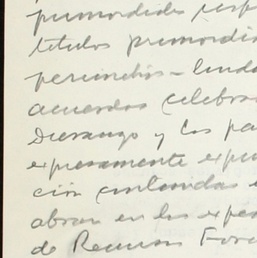 primordiales resp
títulos primordia
perimetros - linda
acuerdos celebra
Durango y los pa
expresamente expu
ción contenidas e
abran en los expe
de Recursos Fore